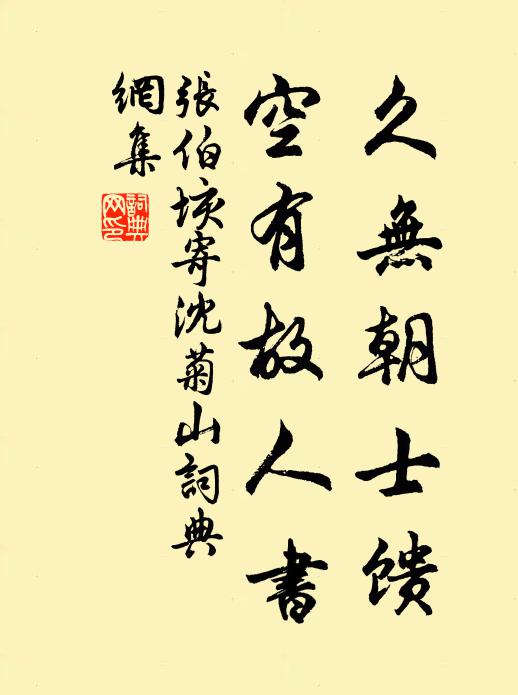 久無朝士馈
空有故人書
張伯垓寄沈菊山詞典
網集
詞典網印